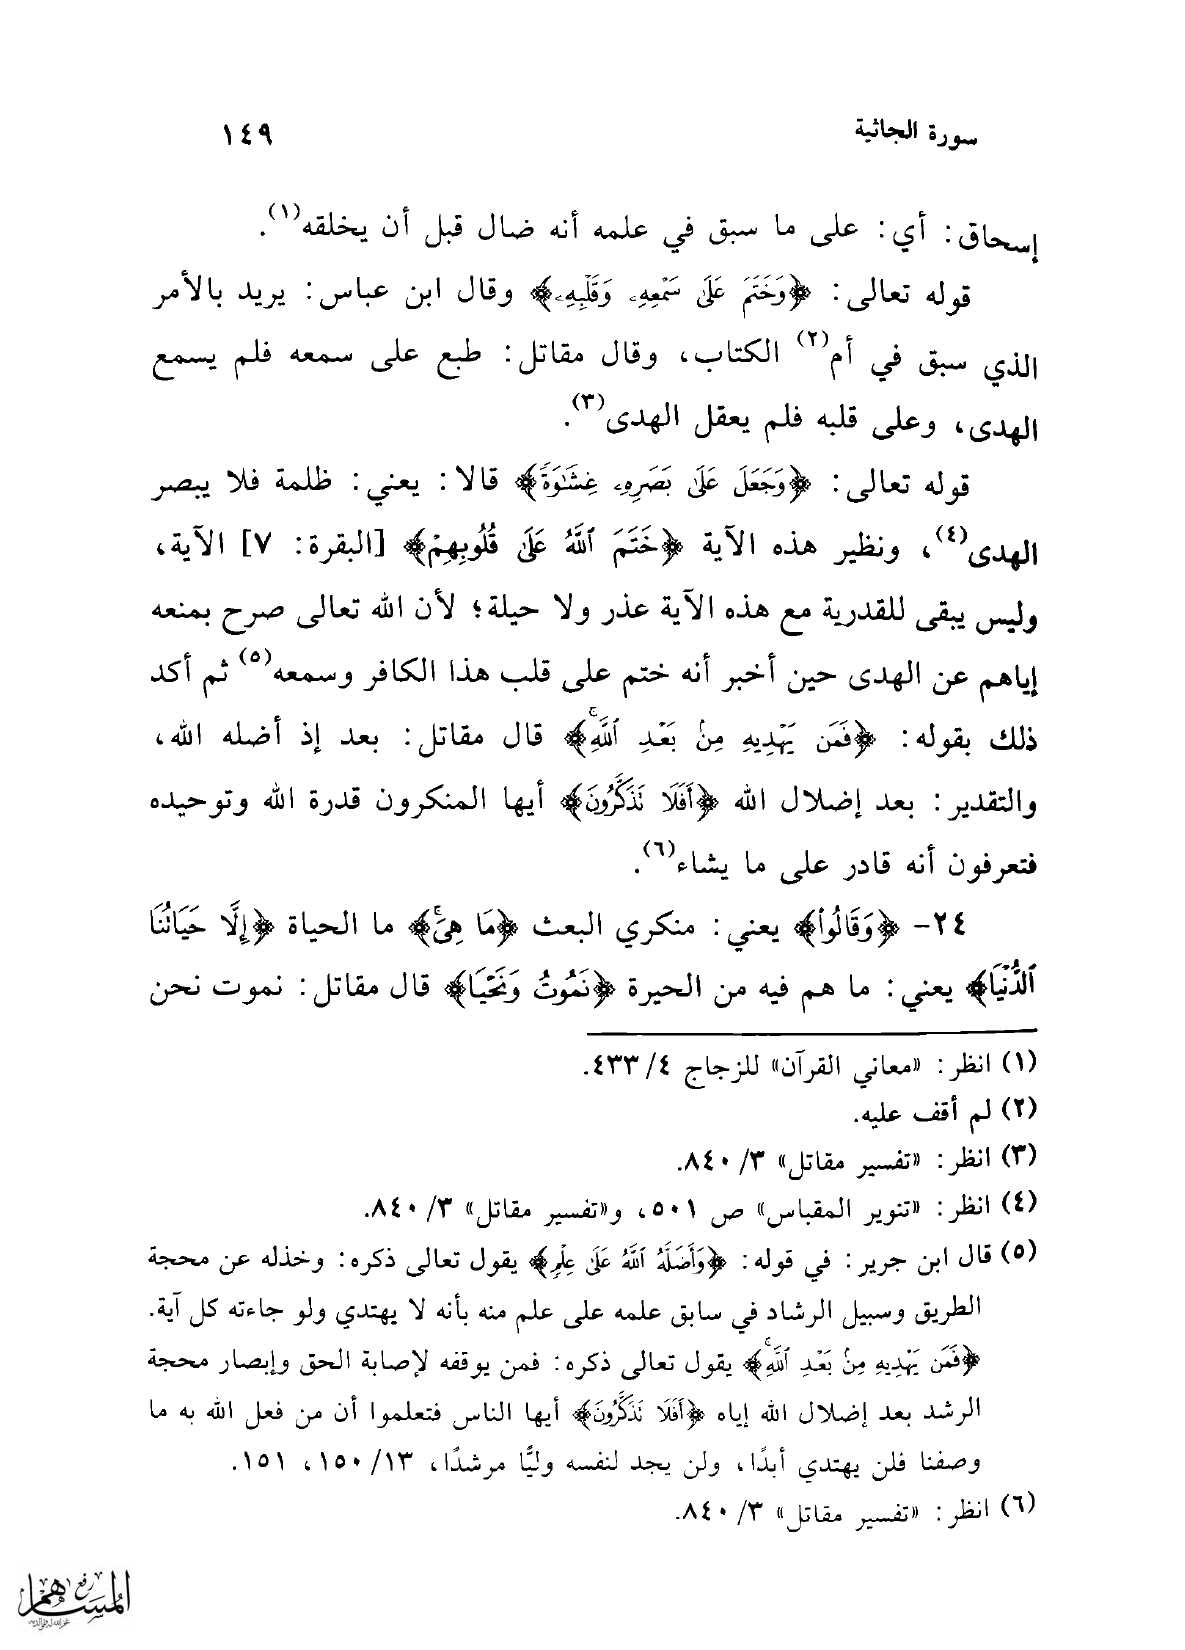 سورة الجاثية ١٤٩
إسحاق: أي: على ما سبق في علمه أنه ضال قبل أن يخلقه(١).
قوله تعالى: ﴿وَخَتَمَ عَلَىٰ سَمْعِهِۦ وَقَلْبِهِۦ﴾ وقال ابن عباس: يريد بالأمر
الذي سبق في أم(٢) الكتاب، وقال مقاتل: طبع على سمعه فلم يسمع
الهدى، وعلى قلبه فلم يعقل الهدى(٣).
قوله تعالى: ﴿وَجَعَلَ عَلَىٰ بَصَرِهِۦ غِشَٰوَةً﴾ قالا: يعني: ظلمة فلا يبصر
الهدى(٤)، ونظير هذه الآية ﴿خَتَمَ ٱللَّهُ عَلَىٰ قُلُوبِهِمْ﴾ [البقرة: ٧] الآية،
وليس يبقى للقدرية مع هذه الآية عذر ولا حيلة؛ لأن الله تعالى صرح بمنعه
إياهم عن الهدى حين أخبر أنه ختم على قلب هذا الكافر وسمعه(٥) ثم أكد
ذلك بقوله: ﴿فَمَن يَهْدِيهِ مِنۢ بَعْدِ ٱللَّهِۚ﴾ قال مقاتل: بعد إذ أضله الله،
والتقدير: بعد إضلال الله ﴿أَفَلَا تَذَكَّرُونَ﴾ أيها المنكرون قدرة الله وتوحيده
فتعرفون أنه قادر على ما يشاء(٦).
٢٤- ﴿وَقَالُوا۟﴾ يعني: منكري البعث ﴿مَا هِىَۚ﴾ ما الحياة ﴿إِلَّا حَيَاتُنَا
ٱلدُّنْيَا﴾ يعني: ما هم فيه من الحيرة ﴿نَمُوتُ وَنَحْيَا﴾ قال مقاتل: نموت نحن
(١) انظر: «معاني القرآن» للزجاج ٤/ ٤٣٣.
(٢) لم أقف عليه.
(٣) انظر: «تفسير مقاتل» ٣/ ٨٤٠.
(٤) انظر: «تنوير المقباس» ص ٥٠١، و«تفسير مقاتل» ٣/ ٨٤٠.
(٥) قال ابن جرير: في قوله: ﴿وَأَضَلَّهُ ٱللَّهُ عَلَىٰ عِلْمٍ﴾ يقول تعالى ذكره: وخذله عن محجة
الطريق وسبيل الرشاد في سابق علمه على علم منه بأنه لا يهتدي ولو جاءته كل آية.
﴿فَمَن يَهْدِيهِ مِنۢ بَعْدِ ٱللَّهِۚ﴾ يقول تعالى ذكره: فمن يوفقه لإصابة الحق وإبصار محجة
الرشد بعد إضلال الله إياه ﴿أَفَلَا تَذَكَّرُونَ﴾ أيها الناس فتعلموا أن من فعل الله به ما
وصفنا فلن يهتدي أبدًا، ولن يجد لنفسه وليًّا مرشدًا، ١٣/ ١٥٠، ١٥١.
(٦) انظر: «تفسير مقاتل» ٣/ ٨٤٠.